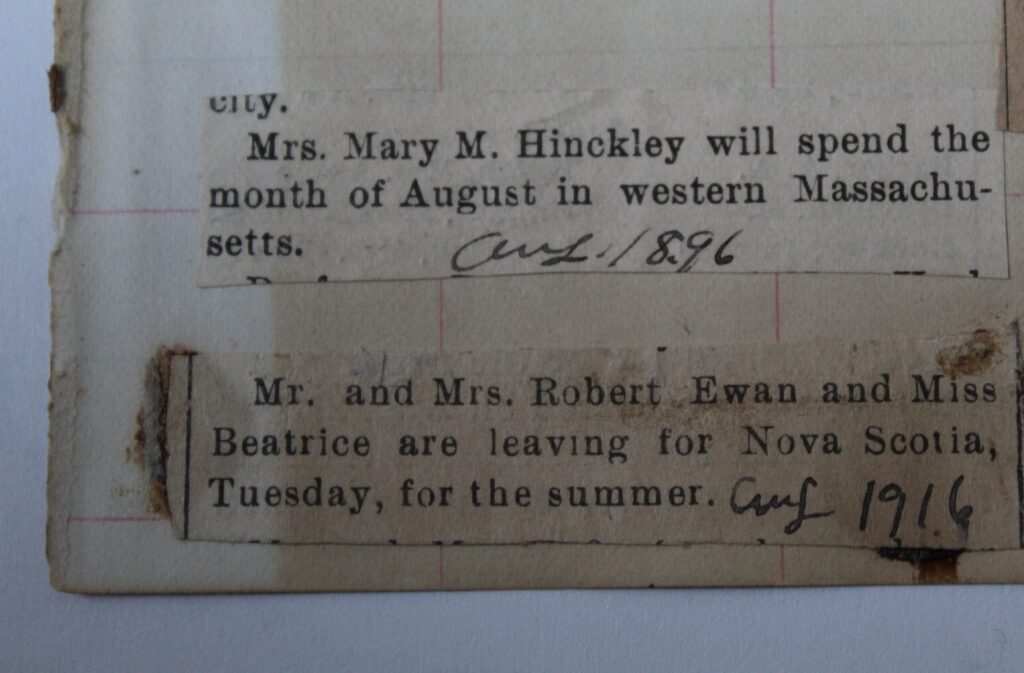 city.
Mrs. Mary M. Hinckley will spend the
month of August in western Massachu-
setts. Aug. 1896
Mr. and Mrs. Robert Ewan and Miss
Beatrice are leaving for Nova Scotia,
Tuesday, for the summer. Aug 1916